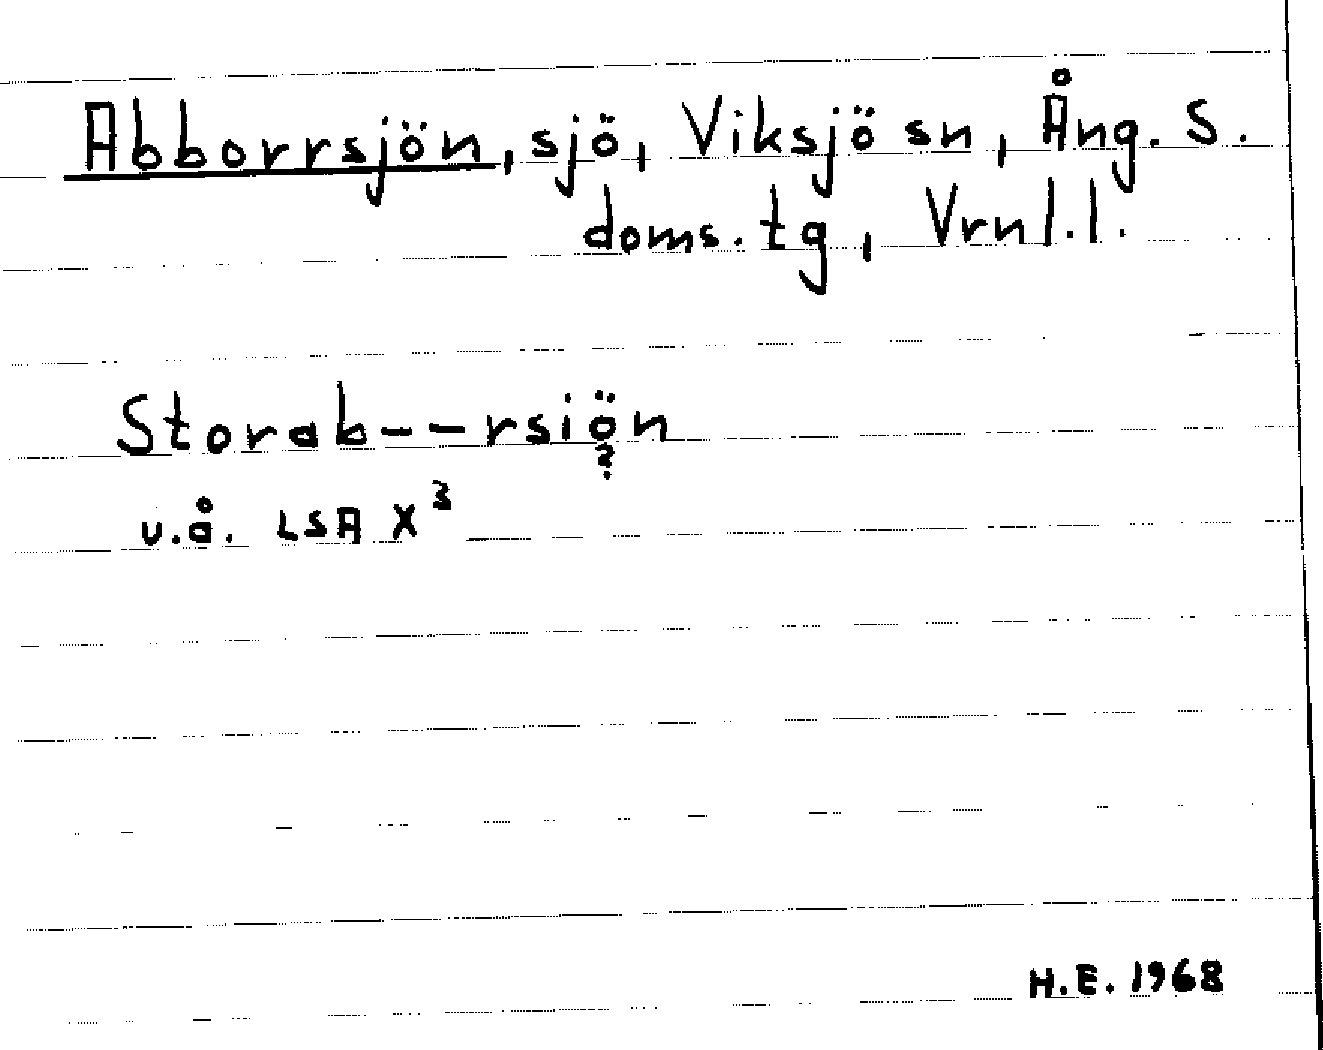 Abborrsjön, sjö, Viksjö sn, Ång. S.
doms. tg, Vrnl. l.
Storab--rsiön
?
u.å. LSA X³
H.E. 1968